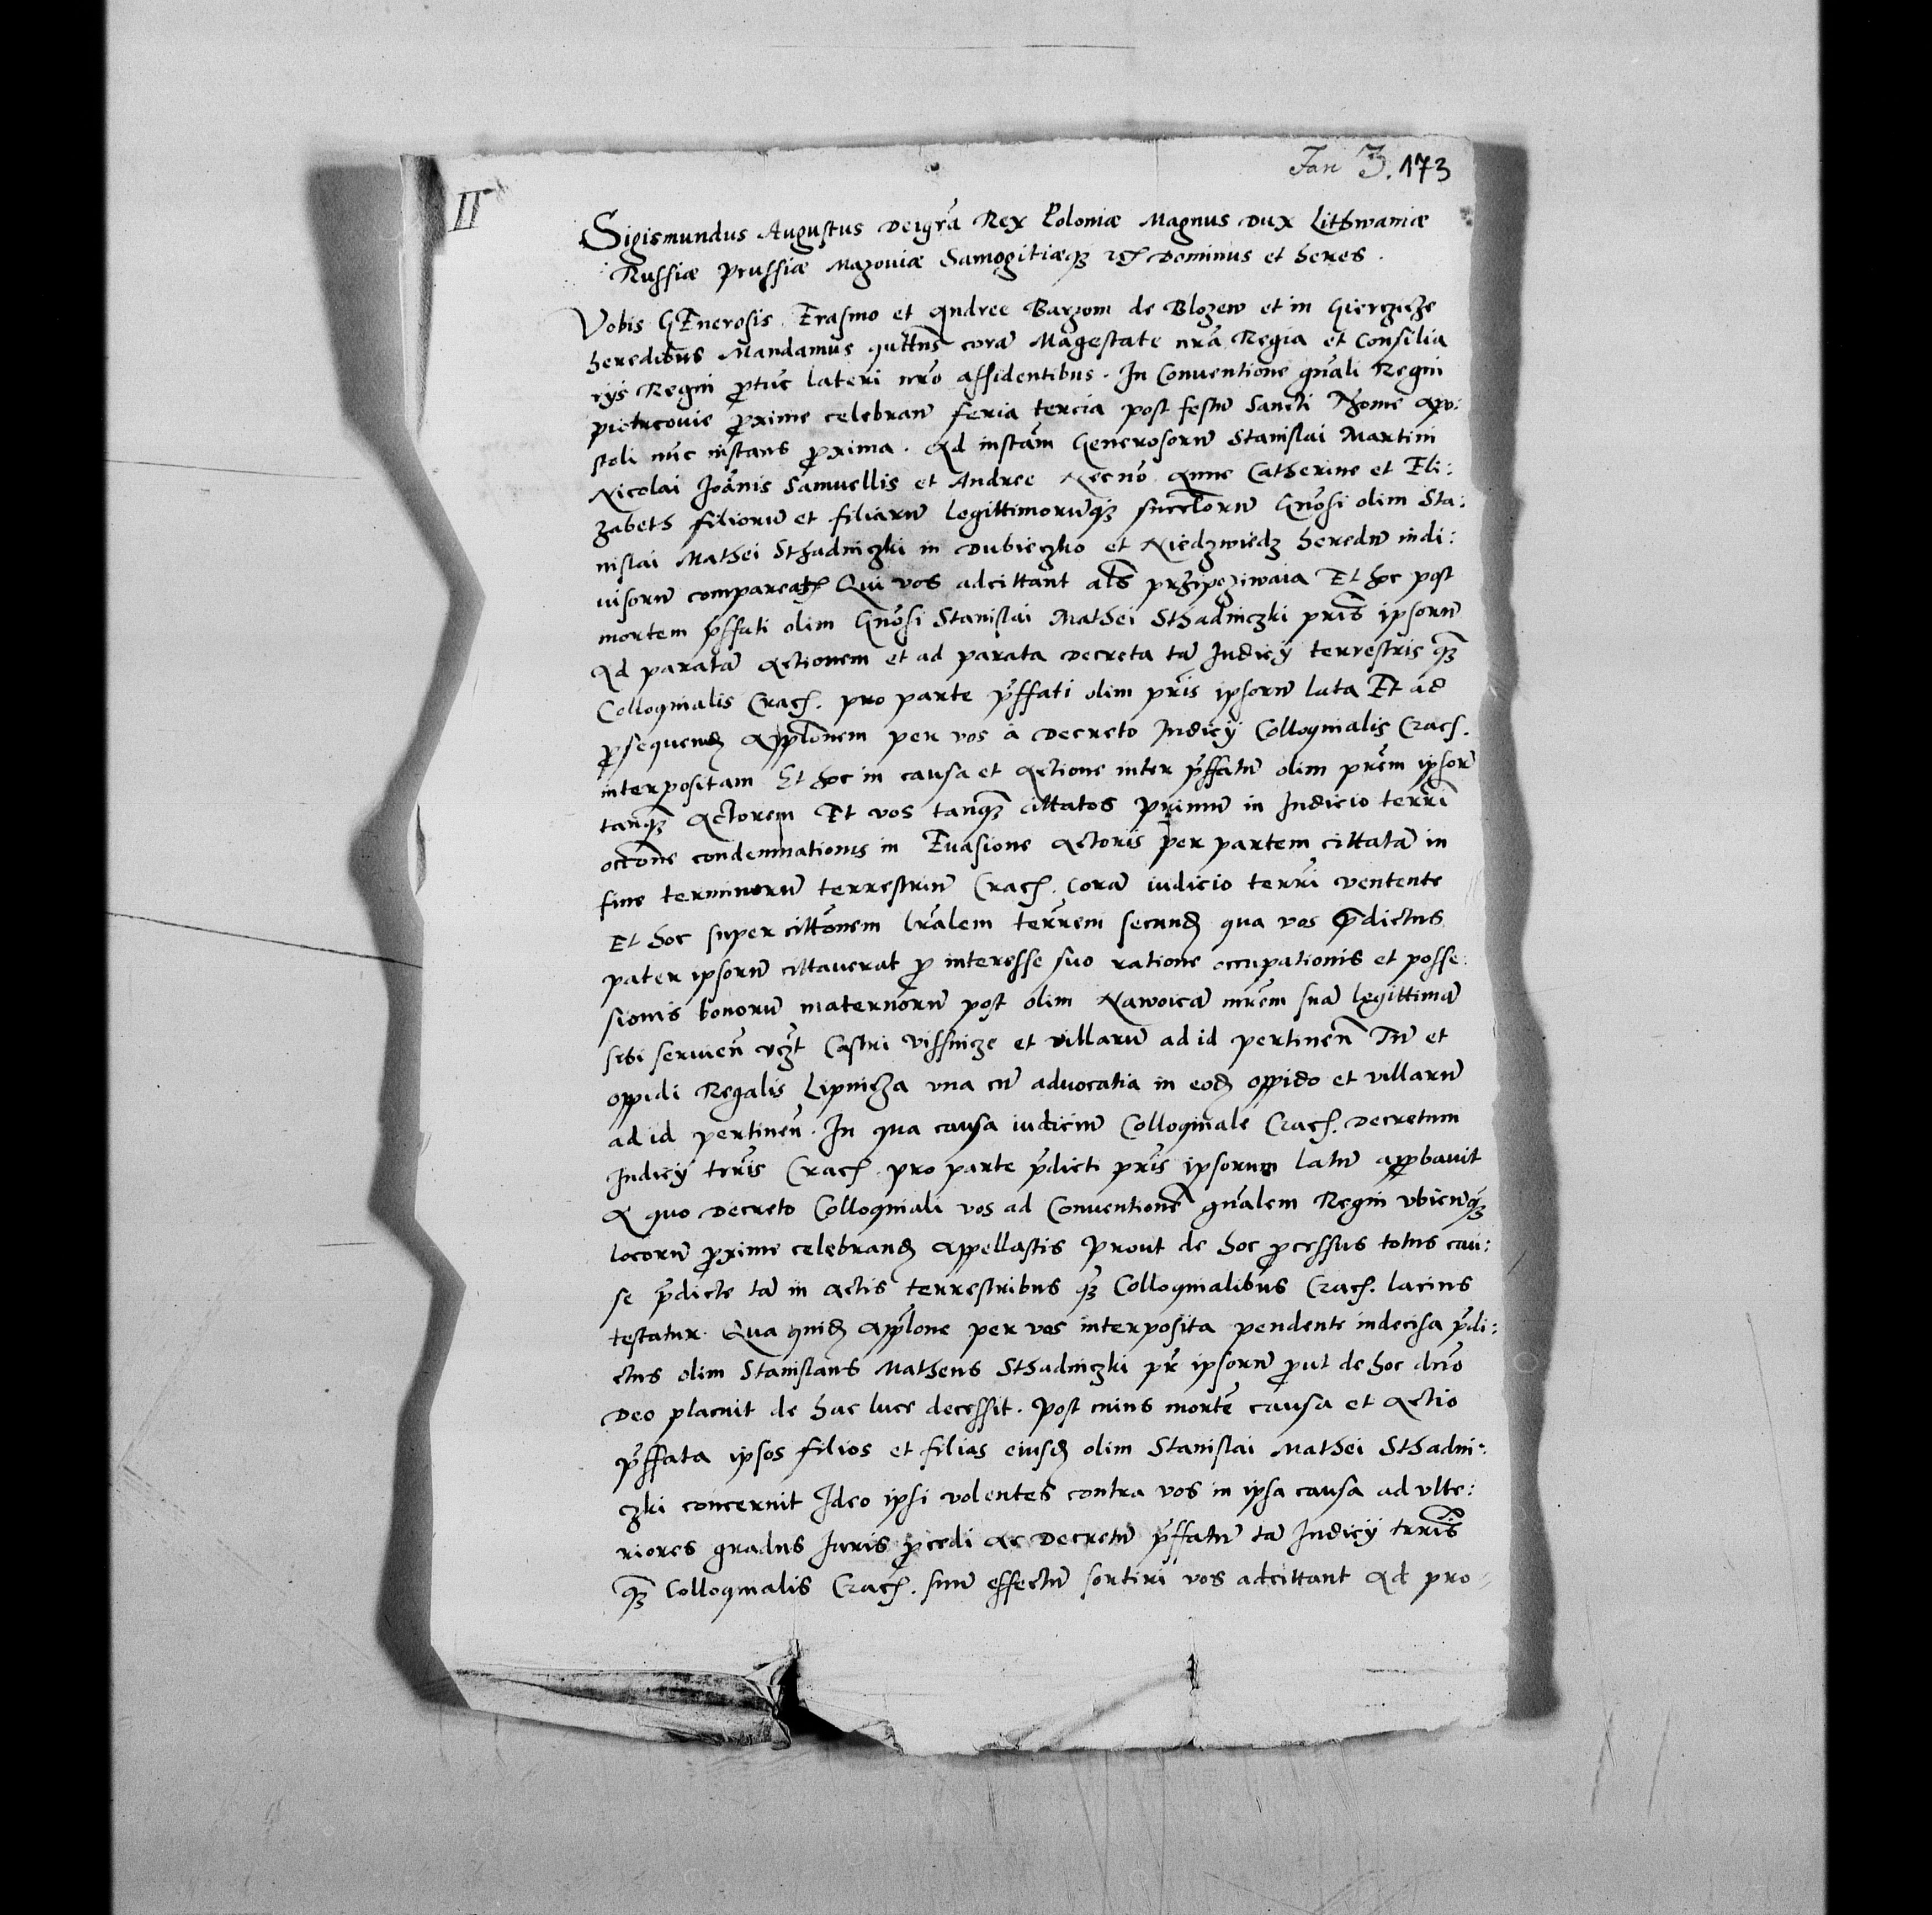 Jan 3. 173
II
Sigismundus Augustus Deigrã Rex Poloniæ Magnus Dux Lithwaniæ
Russiæ Prussiæ Mazoviæ Samogitiæq₃ Dominus et heres.
Vobis GEnerosis Erasmo et Andree Barzom de Blozew et in Gierczicze
heredibus Mandamus quttns corã Magestate nrã Regia et Consilia
rijs Regni ptuc lateri nro assidentibus. In Conventione gnãli Regni
pietrcovie pxime celebran̄ feria tercia post festũ Sancti Thome Apo:
stoli nũc instans pxima. Ad instãm Generosorũ Stanislai Martini
Nicolai Joãnis Samuellis et Andree Necnõ Anne Catherine et Eli:
zabeth filiorũ et filiarũ legittimorũq₃ succesorũ Gnõsi olim Sta:
nislai Mathei Sthadniczki in Dubieczko et Niedzwiedz heredũ indi:
uisorũ compareatis Qui vos adcittant als przipoziwaia Et hoc post
mortem pffati olim Gnõsi Stanislai Mathei Sthadniczki pris ipsorũ
Ad paratã Actionem et ad parata Decreta tã Judicij terrestris q₃
Colloquialis Crac. pro parte pffati olim pris ipsorũ lata Et ad
psequend Applonem per vos à Decreto Judicij Colloquialis Crac.
interpositam Et hoc in causa et Actione inter pffatũ olim prẽm ipsorũ
tanq₃ Actorem Et vos tanq₃ cittatos primũ in Judicio terri
occõne condemnationis in Evasione Actoris per partem cittatã in
fine terminorũ terrestriũ Crac. Corã iudicio terri ventente
Et hoc super cittõnem lrãlem terrẽm secund qua vos pdictus
pater ipsorũ cittauerat p interesse suo ratione occupationis et posse:
sionis bonorũ maternorũ post olim Nawoicã mrẽm suã legittimã
sibi servien̄ vczt Castri vissnicze et villarũ ad id pertinen̄ Tũ et
oppidi Regalis Lipnicza vna cũ advocatia in eod oppido et villarũ
ad id pertinen̄. In qua causa iudiciũ Colloquiale Crac. Decretum
Judicij trris Crac. pro parte pdicti pris ipsorum latũ appbauit
A quo Decreto Colloquiali vos ad Conventionẽ gnãlem Regni vbicũq₃
locorũ pxime celebrand Appellastis prout de hoc pcessus totus cau:
se pdicte tã in Actis terrestribus q₃ Colloquialibus Crac. lacius
testatur. Qua quid Applone per vos interposita pendente indecisa pdi:
ctus olim Stanislaus Matheus Sthadniczki pr ipsorũ put de hoc dnõ
Deo placuit de hac luce decessit. Post cuius mortẽ causa et Actio
pffata ipsos filios et filias eiusd olim Stanislai Mathei Sthadni:
czki concernit Ideo ipsi volentes contra vos in ipsa causa ad vlte:
riores gradus Juris pcedi Ac Decretũ pffatũ tã Judicij trris
q₃ Colloquialis Crac. suũ effectũ sortiri vos adcittant Ad pro